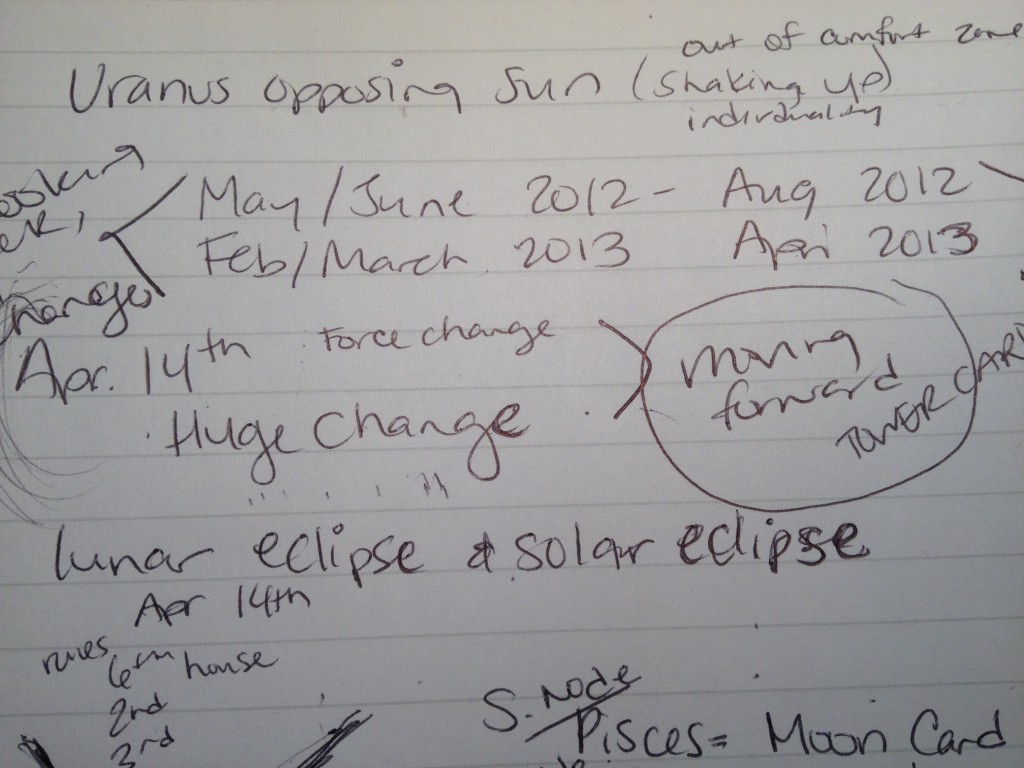 out of comfort zone
Uranus opposing Sun (shaking up)
individuality
May/June 2012 - Aug 2012
Feb/March 2013 April 2013
Apr. 14th Force change
Huge Change
moving
forward
TOWER CARD
lunar eclipse & solar eclipse
Apr 14th
rules 6th house
2nd
3rd
S. Node
Pisces = Moon Card